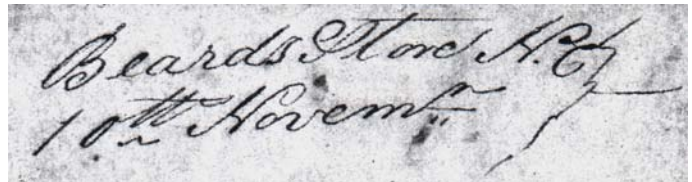 Beards Store N.C.
10th Novemr